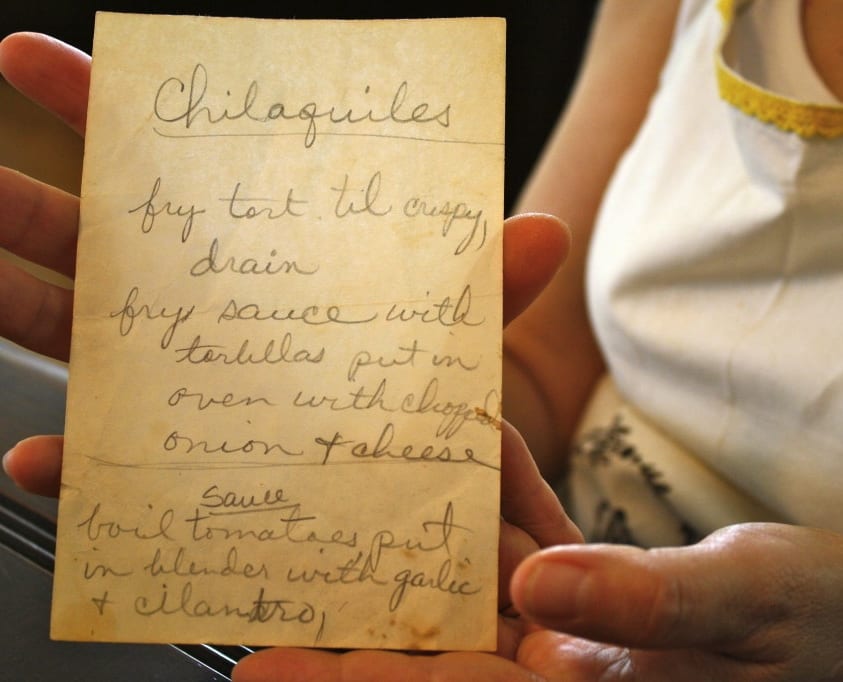 Chilaquiles
fry tort. til crispy,
drain
fry sauce with
tortillas put in
oven with chopped
onion + cheese
Sauce
boil tomatoes, put
in blender with garlic
+ cilantro,